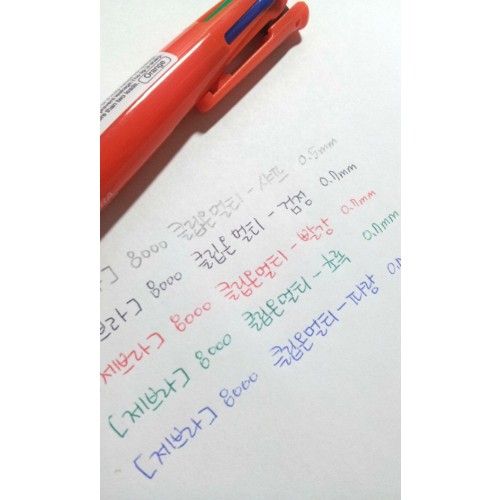 ] 8000 클립온멀티 - 샤프 0.5mm
브라] 8000 클립온멀티 - 검정 0.7mm
제브라] 8000 클립온멀티 - 빨강 0.7mm
[제브라] 8000 클립온멀티 - 초록 0.7mm
[제브라] 8000 클립온멀티 - 파랑 0.